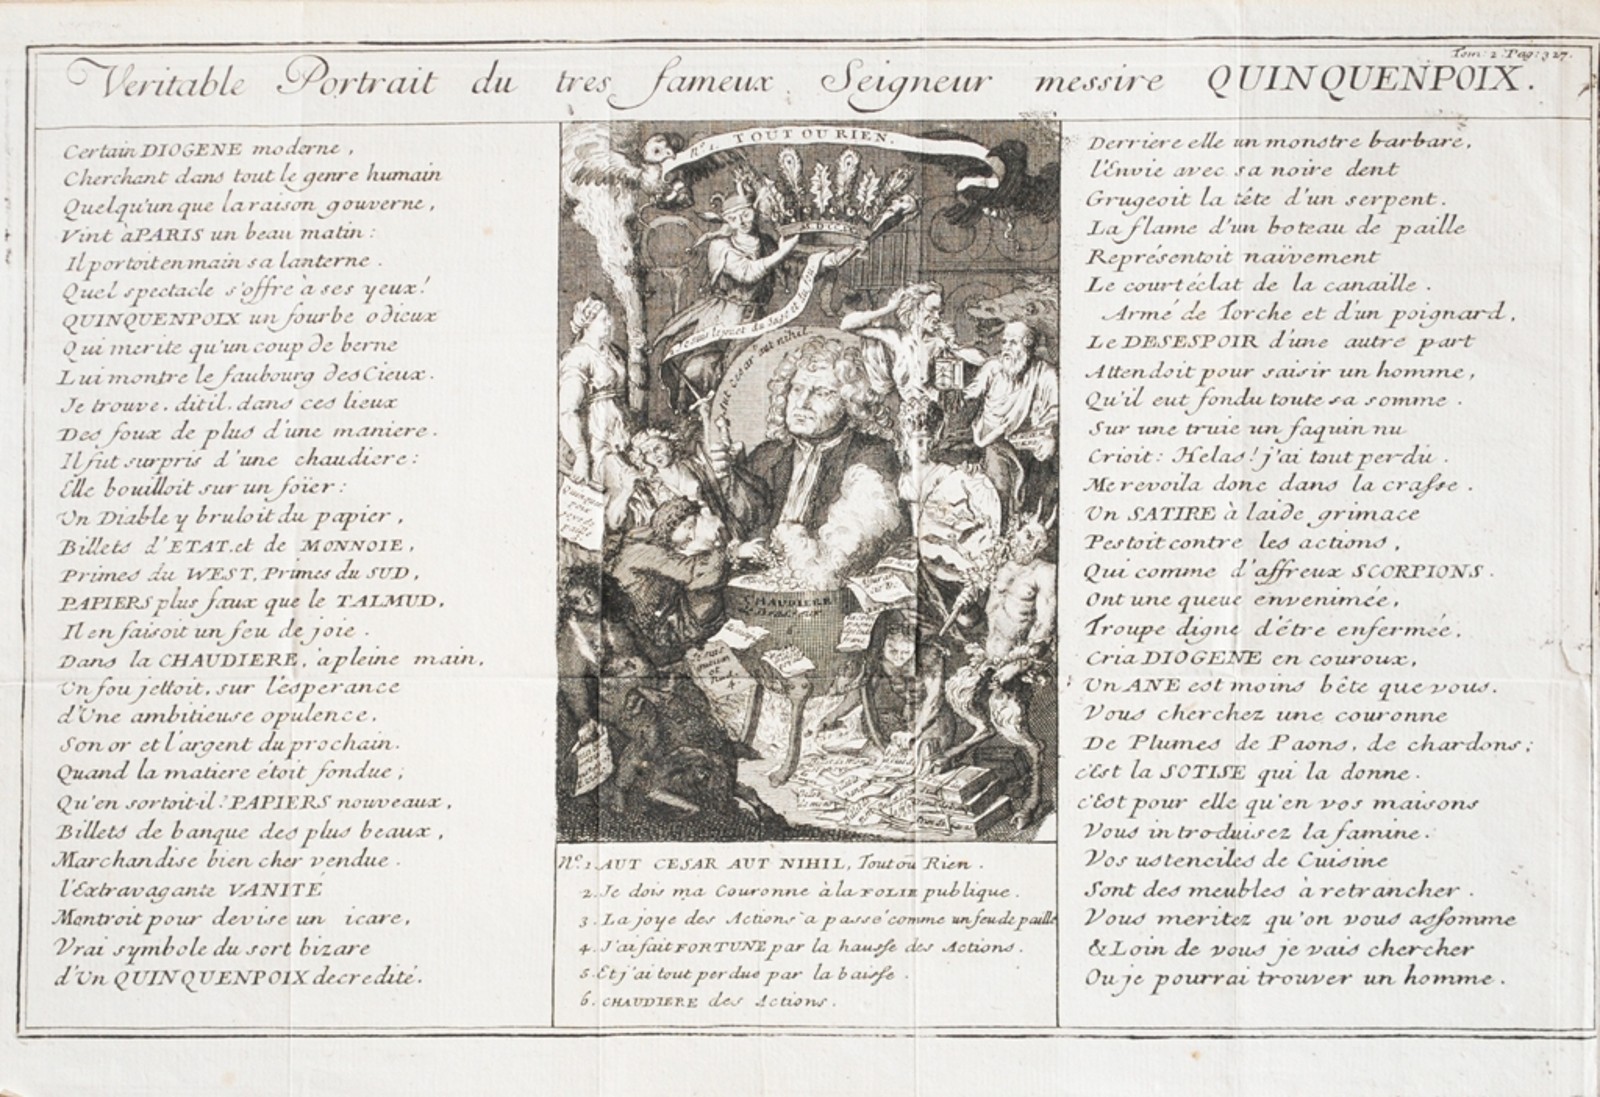 Tom: 2. Pag: 327.
Veritable Portrait du tres fameux Seigneur messire QUINQUENPOIX.
Certain DIOGENE moderne,
Cherchant dans tout le genre humain
Quelqu'un que la raison gouverne,
Vint à PARIS un beau matin:
Il portoit en main sa lanterne.
Quel spectacle s'offre à ses yeux!
QUINQUENPOIX un fourbe odieux
Qui merite qu'un coup de berne
Lui montre le faubourg des Cieux.
Je trouve, dit il, dans ces lieux
Des foux de plus d'une maniere.
Il fut surpris d'une chaudiere:
Elle bouilloit sur un foïer:
Un Diable y bruloit du papier,
Billets d'ETAT, et de MONNOIE,
Primes du WEST, Primes du SUD,
PAPIERS plus faux que le TALMUD,
Il en faisoit un feu de joie.
Dans la CHAUDIERE, à pleine main,
Un fou jettoit, sur l'esperance
d'Une ambitieuse opulence,
Son or et l'argent du prochain.
Quand la matiere étoit fondue;
Qu'en sortoit-il? PAPIERS nouveaux,
Billets de banque des plus beaux,
Marchandise bien cher vendue.
l'Extravagante VANITÉ
Montroit pour devise un icare,
Vrai symbole du sort bizare
d'Un QUINQUENPOIX decredité.
No. 1. TOUT OU RIEN.
MDCCXX
Aut Cesar aut nihil.
CHAUDIERE
No. 1. AUT CESAR AUT NIHIL, Tout ou Rien.
2. Je dois ma Couronne à la FOLIE publique.
3. La joye des Actions a passé comme un feu de paille
4. J'ai fait FORTUNE par la hausse des Actions.
5. Et j'ai tout perdue par la baisse.
6. CHAUDIERE des Actions.
Derriere elle un monstre barbare,
l'Envie avec sa noire dent
Grugeoit la tête d'un serpent.
La flame d'un boteau de paille
Représentoit naïvement
Le court éclat de la canaille.
Armé de Torche et d'un poignard,
Le DESESPOIR d'une autre part
Attendoit pour saisir un homme,
Qu'il eut fondu toute sa somme.
Sur une truie un faquin nu
Crioit: Helas! j'ai tout perdu.
Me revoila donc dans la crasse.
Un SATIRE à laide grimace
Pestoit contre les actions,
Qui comme d'affreux SCORPIONS.
Ont une queue envenimée,
Troupe digne d'être enfermée,
Cria DIOGENE en couroux,
Un ANE est moins bête que vous.
Vous cherchez une couronne
De Plumes de Paons, de chardons;
c'Est la SOTISE qui la donne.
c'Est pour elle qu'en vos maisons
Vous introduisez la famine.
Vos ustenciles de Cuisine
Sont des meubles à retrancher.
Vous meritez qu'on vous assomme
& Loin de vous je vais chercher
Ou je pourrai trouver un homme.